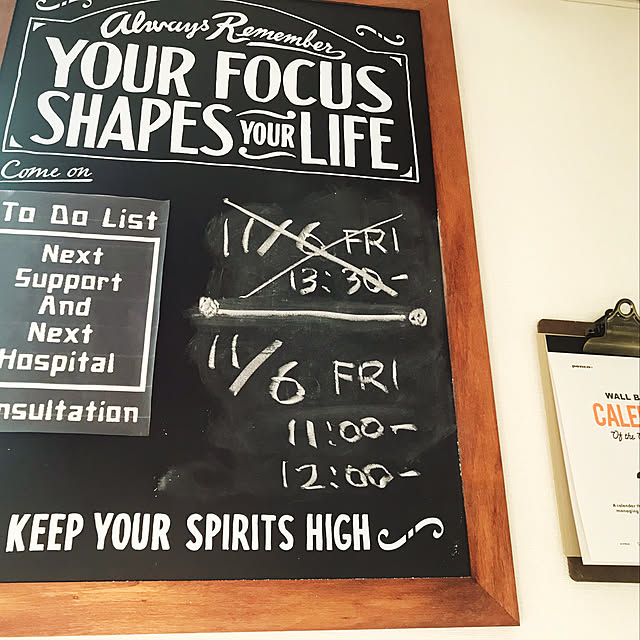 Always Remember
YOUR FOCUS
SHAPES YOUR LIFE
Come on
To Do List
Next
Support
And
Next
Hospital
nsultation
11/6 FRI
13:30-
11/6 FRI
11:00-
12:00-
KEEP YOUR SPIRITS HIGH
WALL B
CALE
Of the
A calendar
managing